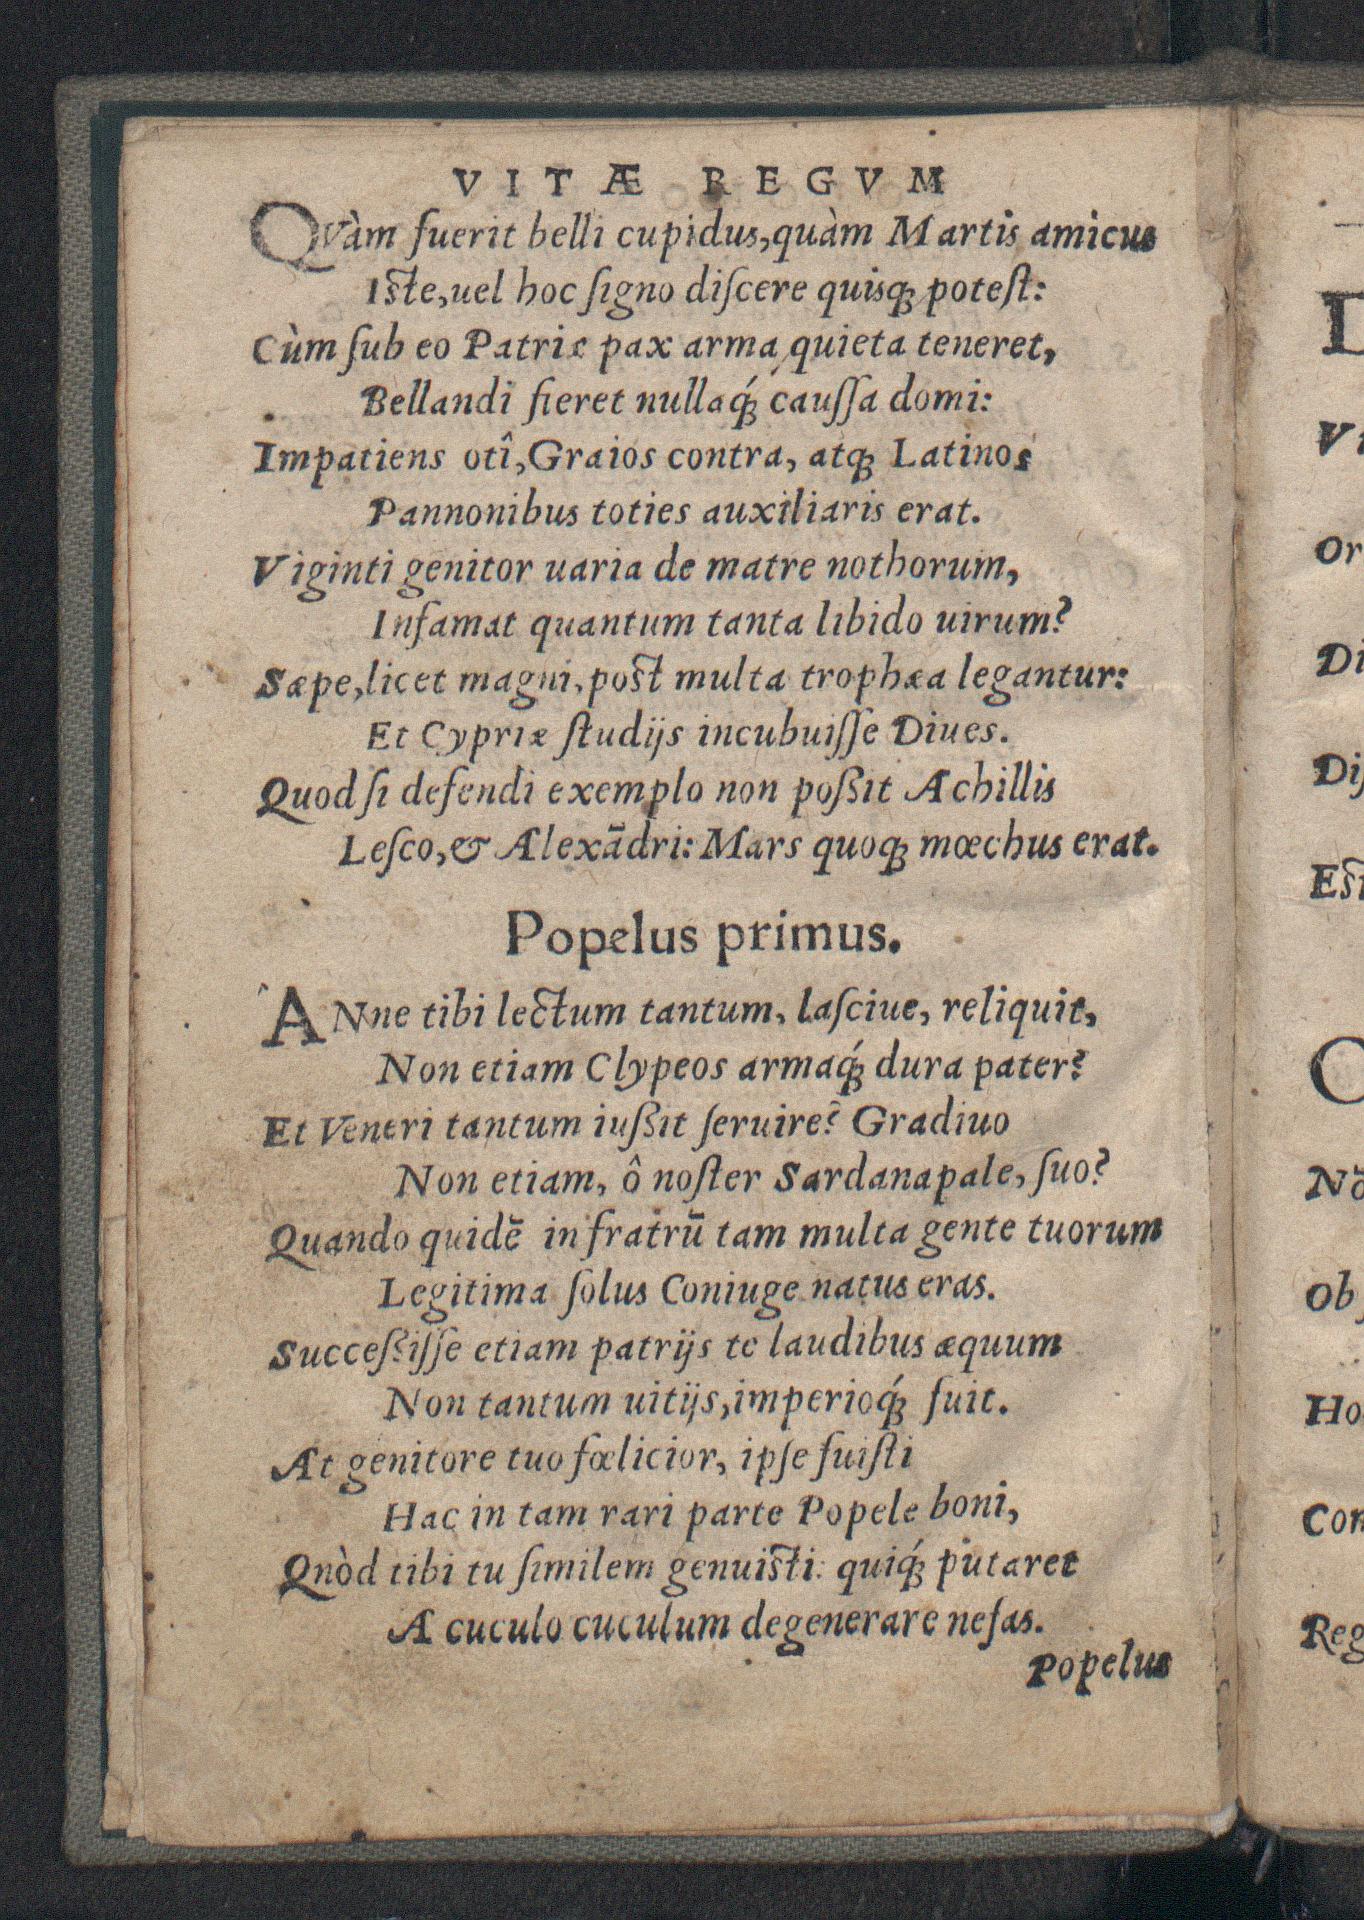 VITÆ REGVM
QVàm fuerit belli cupidus,quàm Martis amicus
Iste,uel hoc ſigno diſcere quisq; poteſt:
Cùm ſub eo Patriæ pax arma quieta teneret,
Bellandi fieret nullaq́; cauſſa domi:
Impatiens otî,Graios contra, atq; Latinos
Pannonibus toties auxiliaris erat.
Viginti genitor uaria de matre nothorum,
Infamat quantum tanta libido uirum?
Sæpe,licet magni,post multa trophæa legantur:
Et Cypriæ ſtudijs incubuiſſe Diues.
Quod ſi defendi exemplo non poßit Achillis
Leſco,& Alexādri: Mars quoq; mœchus erat.
Popelus primus.
ANne tibi lectum tantum, laſciue, reliquit,
Non etiam Clypeos armaq́; dura pater?
Et Veneri tantum iußit ſeruire? Gradiuo
Non etiam, ô noſter Sardanapale, ſuo?
Quando quidē in fratrū tam multa gente tuorum
Legitima ſolus Coniuge natus eras.
Succeßiſſe etiam patrijs te laudibus æquum
Non tantum uitijs,imperioq́; fuit.
At genitore tuo fœlicior, ipſe fuiſti
Hac in tam rari parte Popele boni,
Qnòd tibi tu ſimilem genuisti: quiq́; putaret
A cuculo cuculum degenerare nefas.
Popelus
Vi
Or
Di
Dij
Est
C
Nō
Ob
Ho
Con
Reg